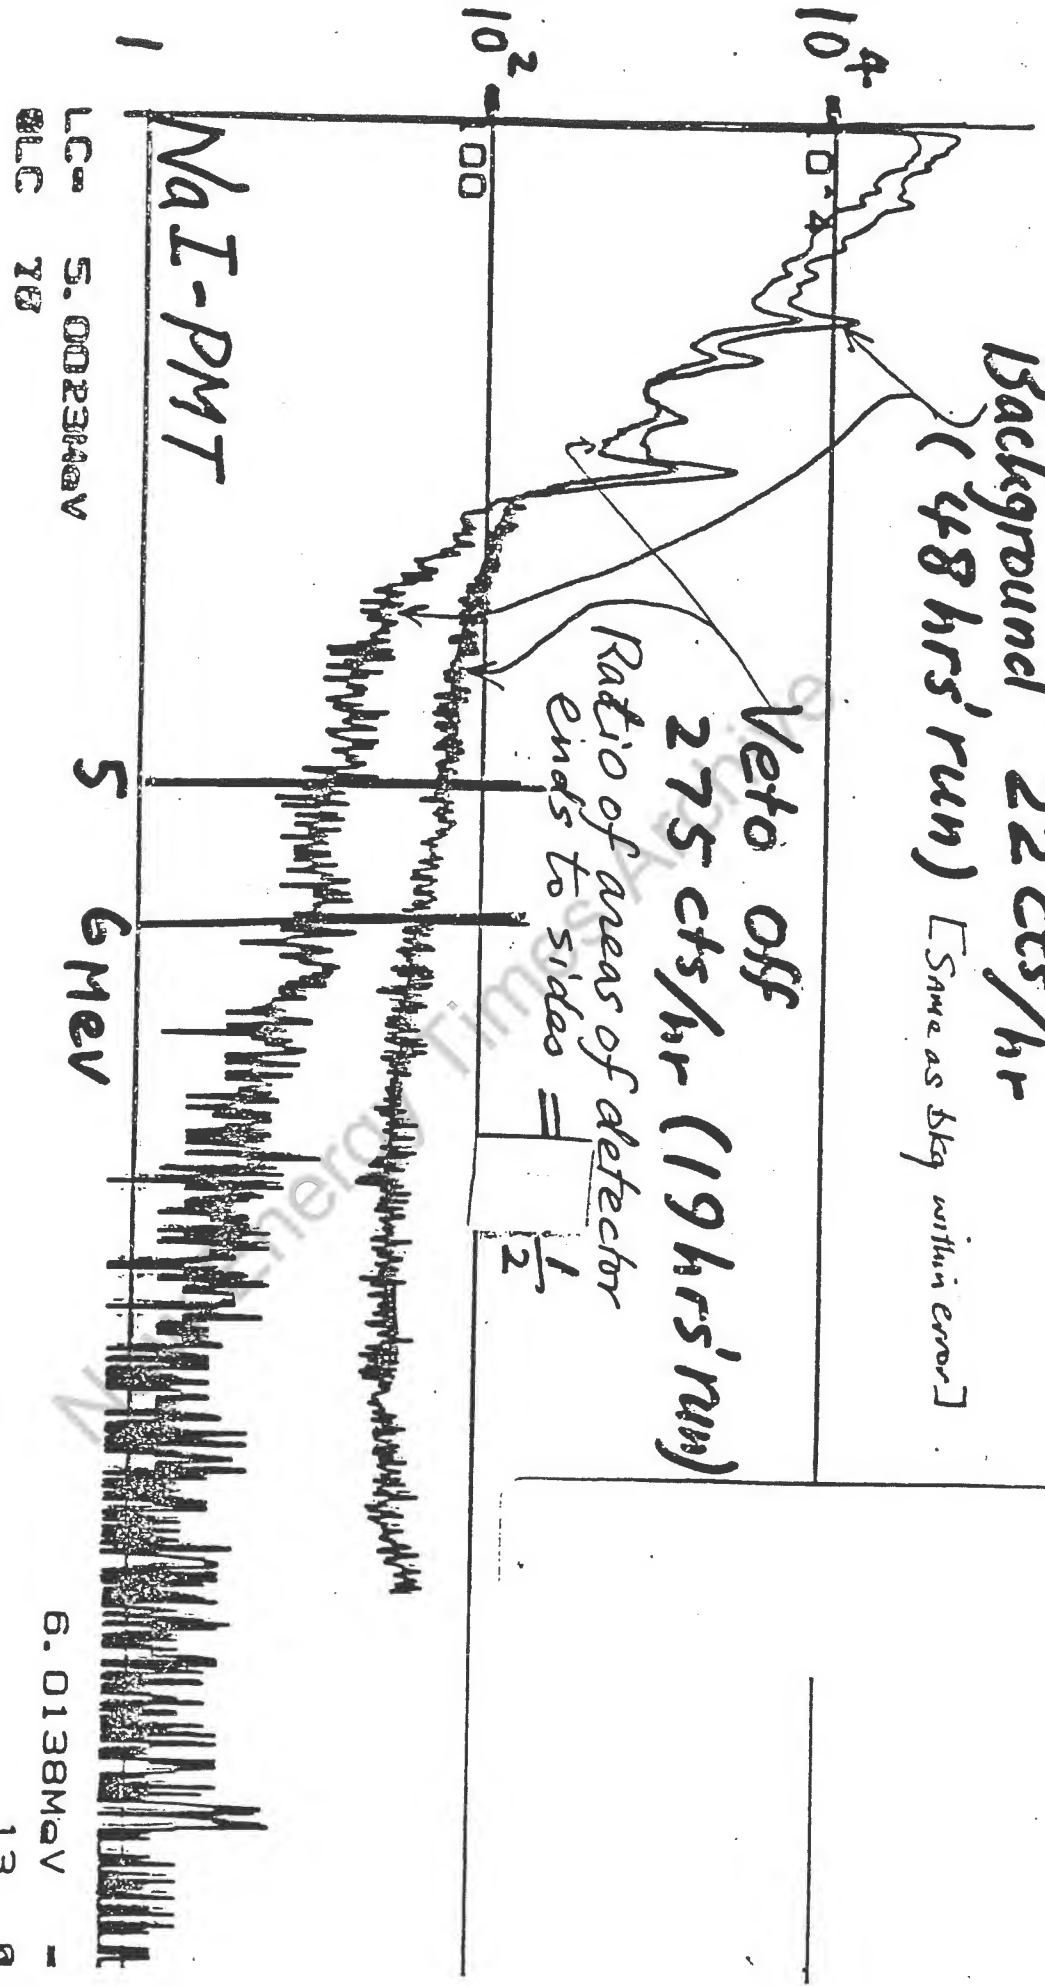 Background 22 cts/hr
(48 hrs' run) [Same as bkg within error]
Veto off
275 cts/hr (19 hrs' run)
Ratio of areas of detector
ends to sides = 1/2
10⁴
10^4
10²
100
1
NaI-PMT
5
6 MeV
LC= 5.0023MeV
6.0138MeV =
New Energy Times Archive